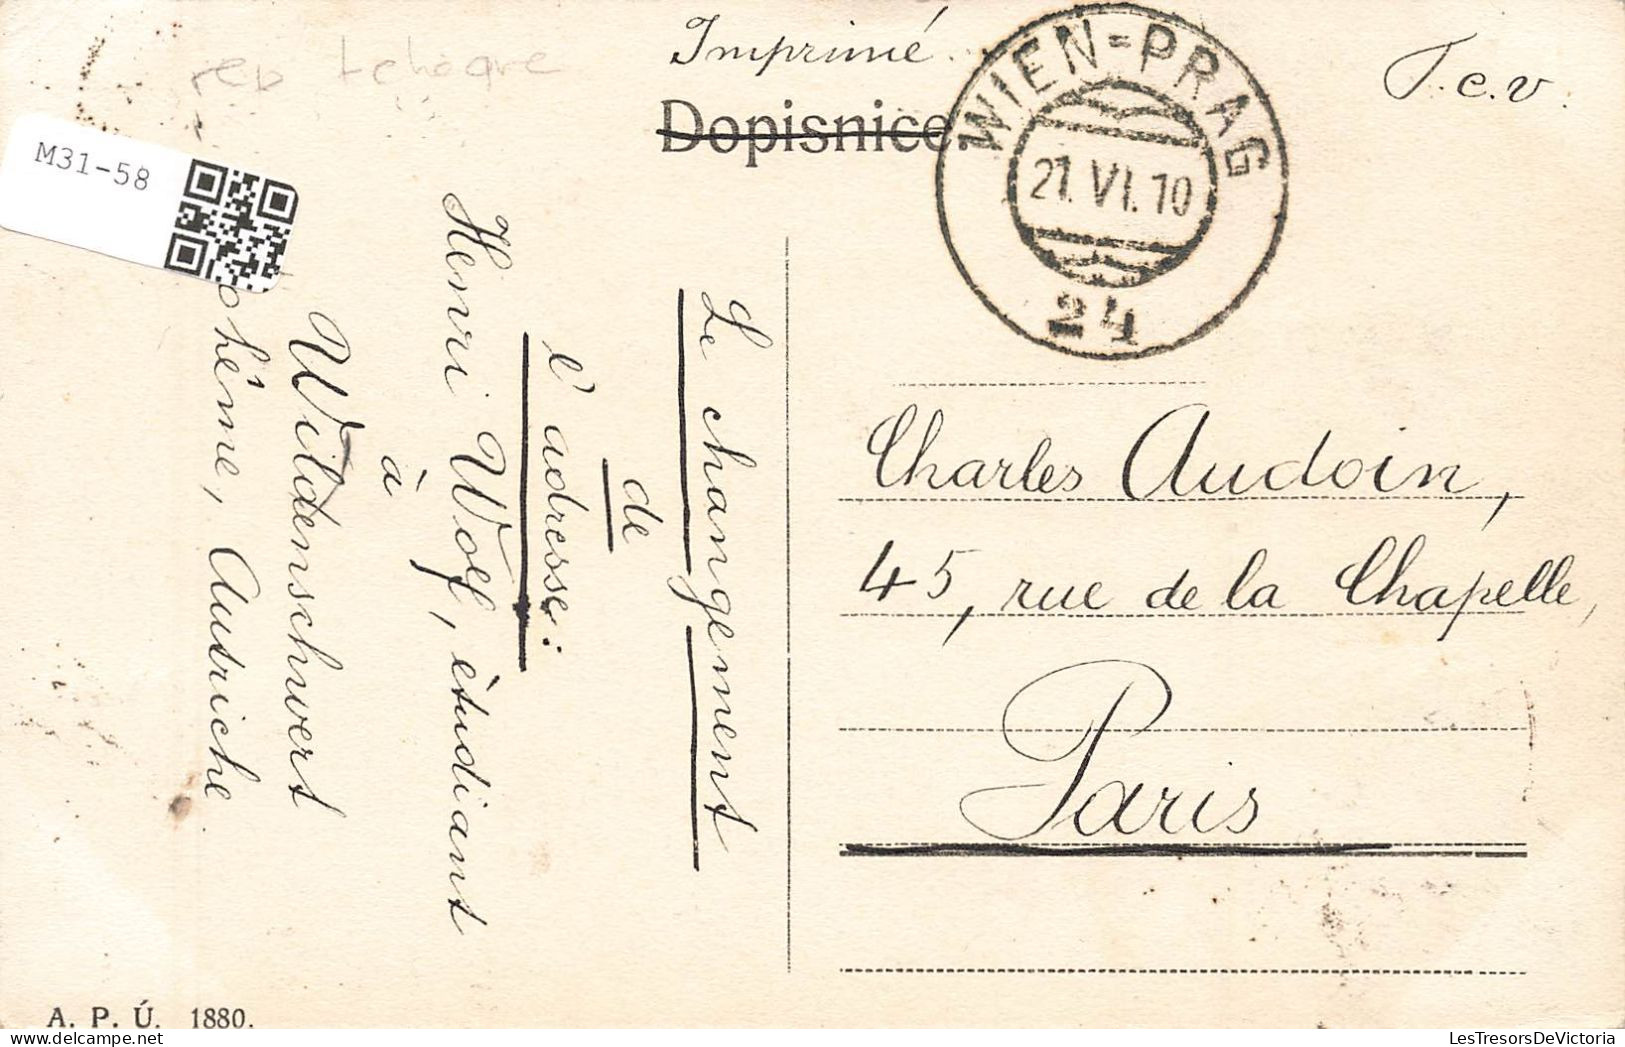 rep tchèque
Imprimé.
T.c.v.
Dopisnice.
WIEN=PRAG
21.VI.10
24
M31-58
Le changement
de
l'adresse:
Henri Wolf, étudiant
à
Wildenschwert
ohême, Autriche
Charles Audoin,
45, rue de la Chapelle,
Paris
A. P. Ú. 1880.
LesTresorsDeVictoria